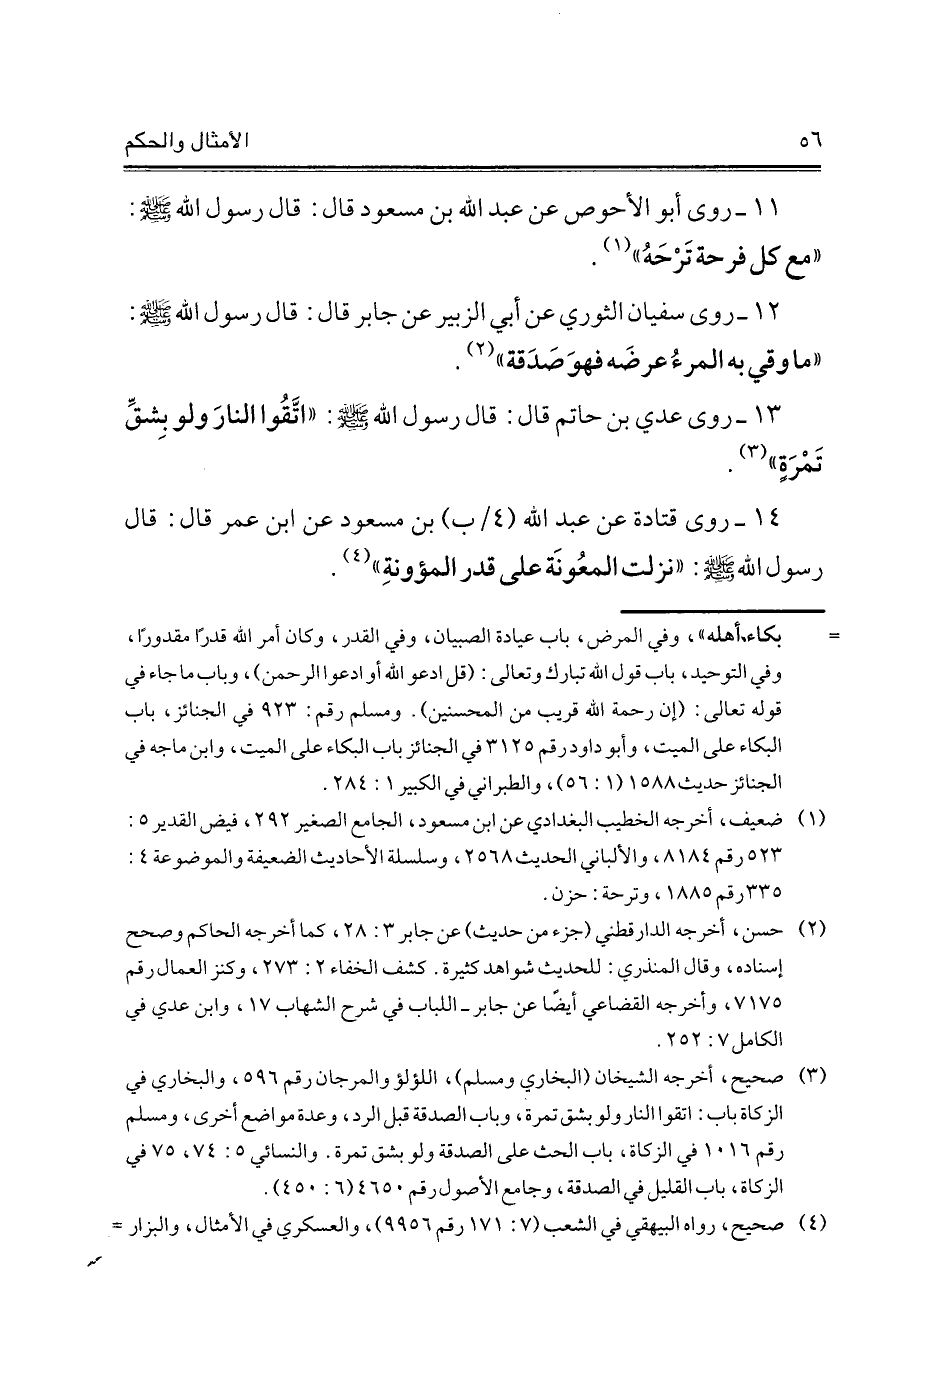 ٥٦ الأمثال والحكم
١١ ـ روى أبو الأحوص عن عبد الله بن مسعود قال : قال رسول الله ﷺ :
«مع كل فرحة تَرْحَهُ»(١) .
١٢ ـ روى سفيان الثوري عن أبي الزبير عن جابر قال : قال رسول الله ﷺ :
«ما وقي به المرءُ عرضَه فهوَ صَدَقة»(٢) .
١٣ ـ روى عدي بن حاتم قال : قال رسول الله ﷺ : «اتَّقُوا النارَ ولو بِشقِّ
تَمْرَةٍ»(٣) .
١٤ ـ روى قتادة عن عبد الله (٤/ ب) بن مسعود عن ابن عمر قال : قال
رسول الله ﷺ : «نزلت المعُونَة على قدر المؤونةِ»(٤) .
= بكاء أهله» ، وفي المرض، باب عيادة الصبيان، وفي القدر، وكان أمر الله قدرًا مقدورًا،
وفي التوحيد، باب قول الله تبارك وتعالى : (قل ادعو الله أو ادعوا الرحمن)، وباب ما جاء في
قوله تعالى : (إن رحمة الله قريب من المحسنين). ومسلم رقم : ٩٢٣ في الجنائز، باب
البكاء على الميت، وأبو داود رقم ٣١٢٥ في الجنائز باب البكاء على الميت، وابن ماجه في
الجنائز حديث ١٥٨٨ (١ : ٥٦)، والطبراني في الكبير ١ : ٢٨٤ .
(١) ضعيف، أخرجه الخطيب البغدادي عن ابن مسعود، الجامع الصغير ٢٩٢، فيض القدير ٥ :
٥٢٣ رقم ٨١٨٤، والألباني الحديث ٢٥٦٨، وسلسلة الأحاديث الضعيفة والموضوعة ٤ :
٣٣٥ رقم ١٨٨٥، وترحة : حزن .
(٢) حسن، أخرجه الدارقطني (جزء من حديث) عن جابر ٣ : ٢٨، كما أخرجه الحاكم وصحح
إسناده، وقال المنذري : للحديث شواهد كثيرة. كشف الخفاء ٢ : ٢٧٣، وكنز العمال رقم
٧١٧٥، وأخرجه القضاعي أيضًا عن جابر ـ اللباب في شرح الشهاب ١٧، وابن عدي في
الكامل ٧ : ٢٥٢ .
(٣) صحيح، أخرجه الشيخان (البخاري ومسلم)، اللؤلؤ والمرجان رقم ٥٩٦، والبخاري في
الزكاة باب : اتقوا النار ولو بشق تمرة، وباب الصدقة قبل الرد، وعدة مواضع أخرى، ومسلم
رقم ١٠١٦ في الزكاة، باب الحث على الصدقة ولو بشق تمرة. والنسائي ٥ : ٧٤، ٧٥ في
الزكاة، باب القليل في الصدقة، وجامع الأصول رقم ٤٦٥٠ (٦ : ٤٥٠).
(٤) صحيح، رواه البيهقي في الشعب (٧ : ١٧١ رقم ٩٩٥٦)، والعسكري في الأمثال، والبزار =